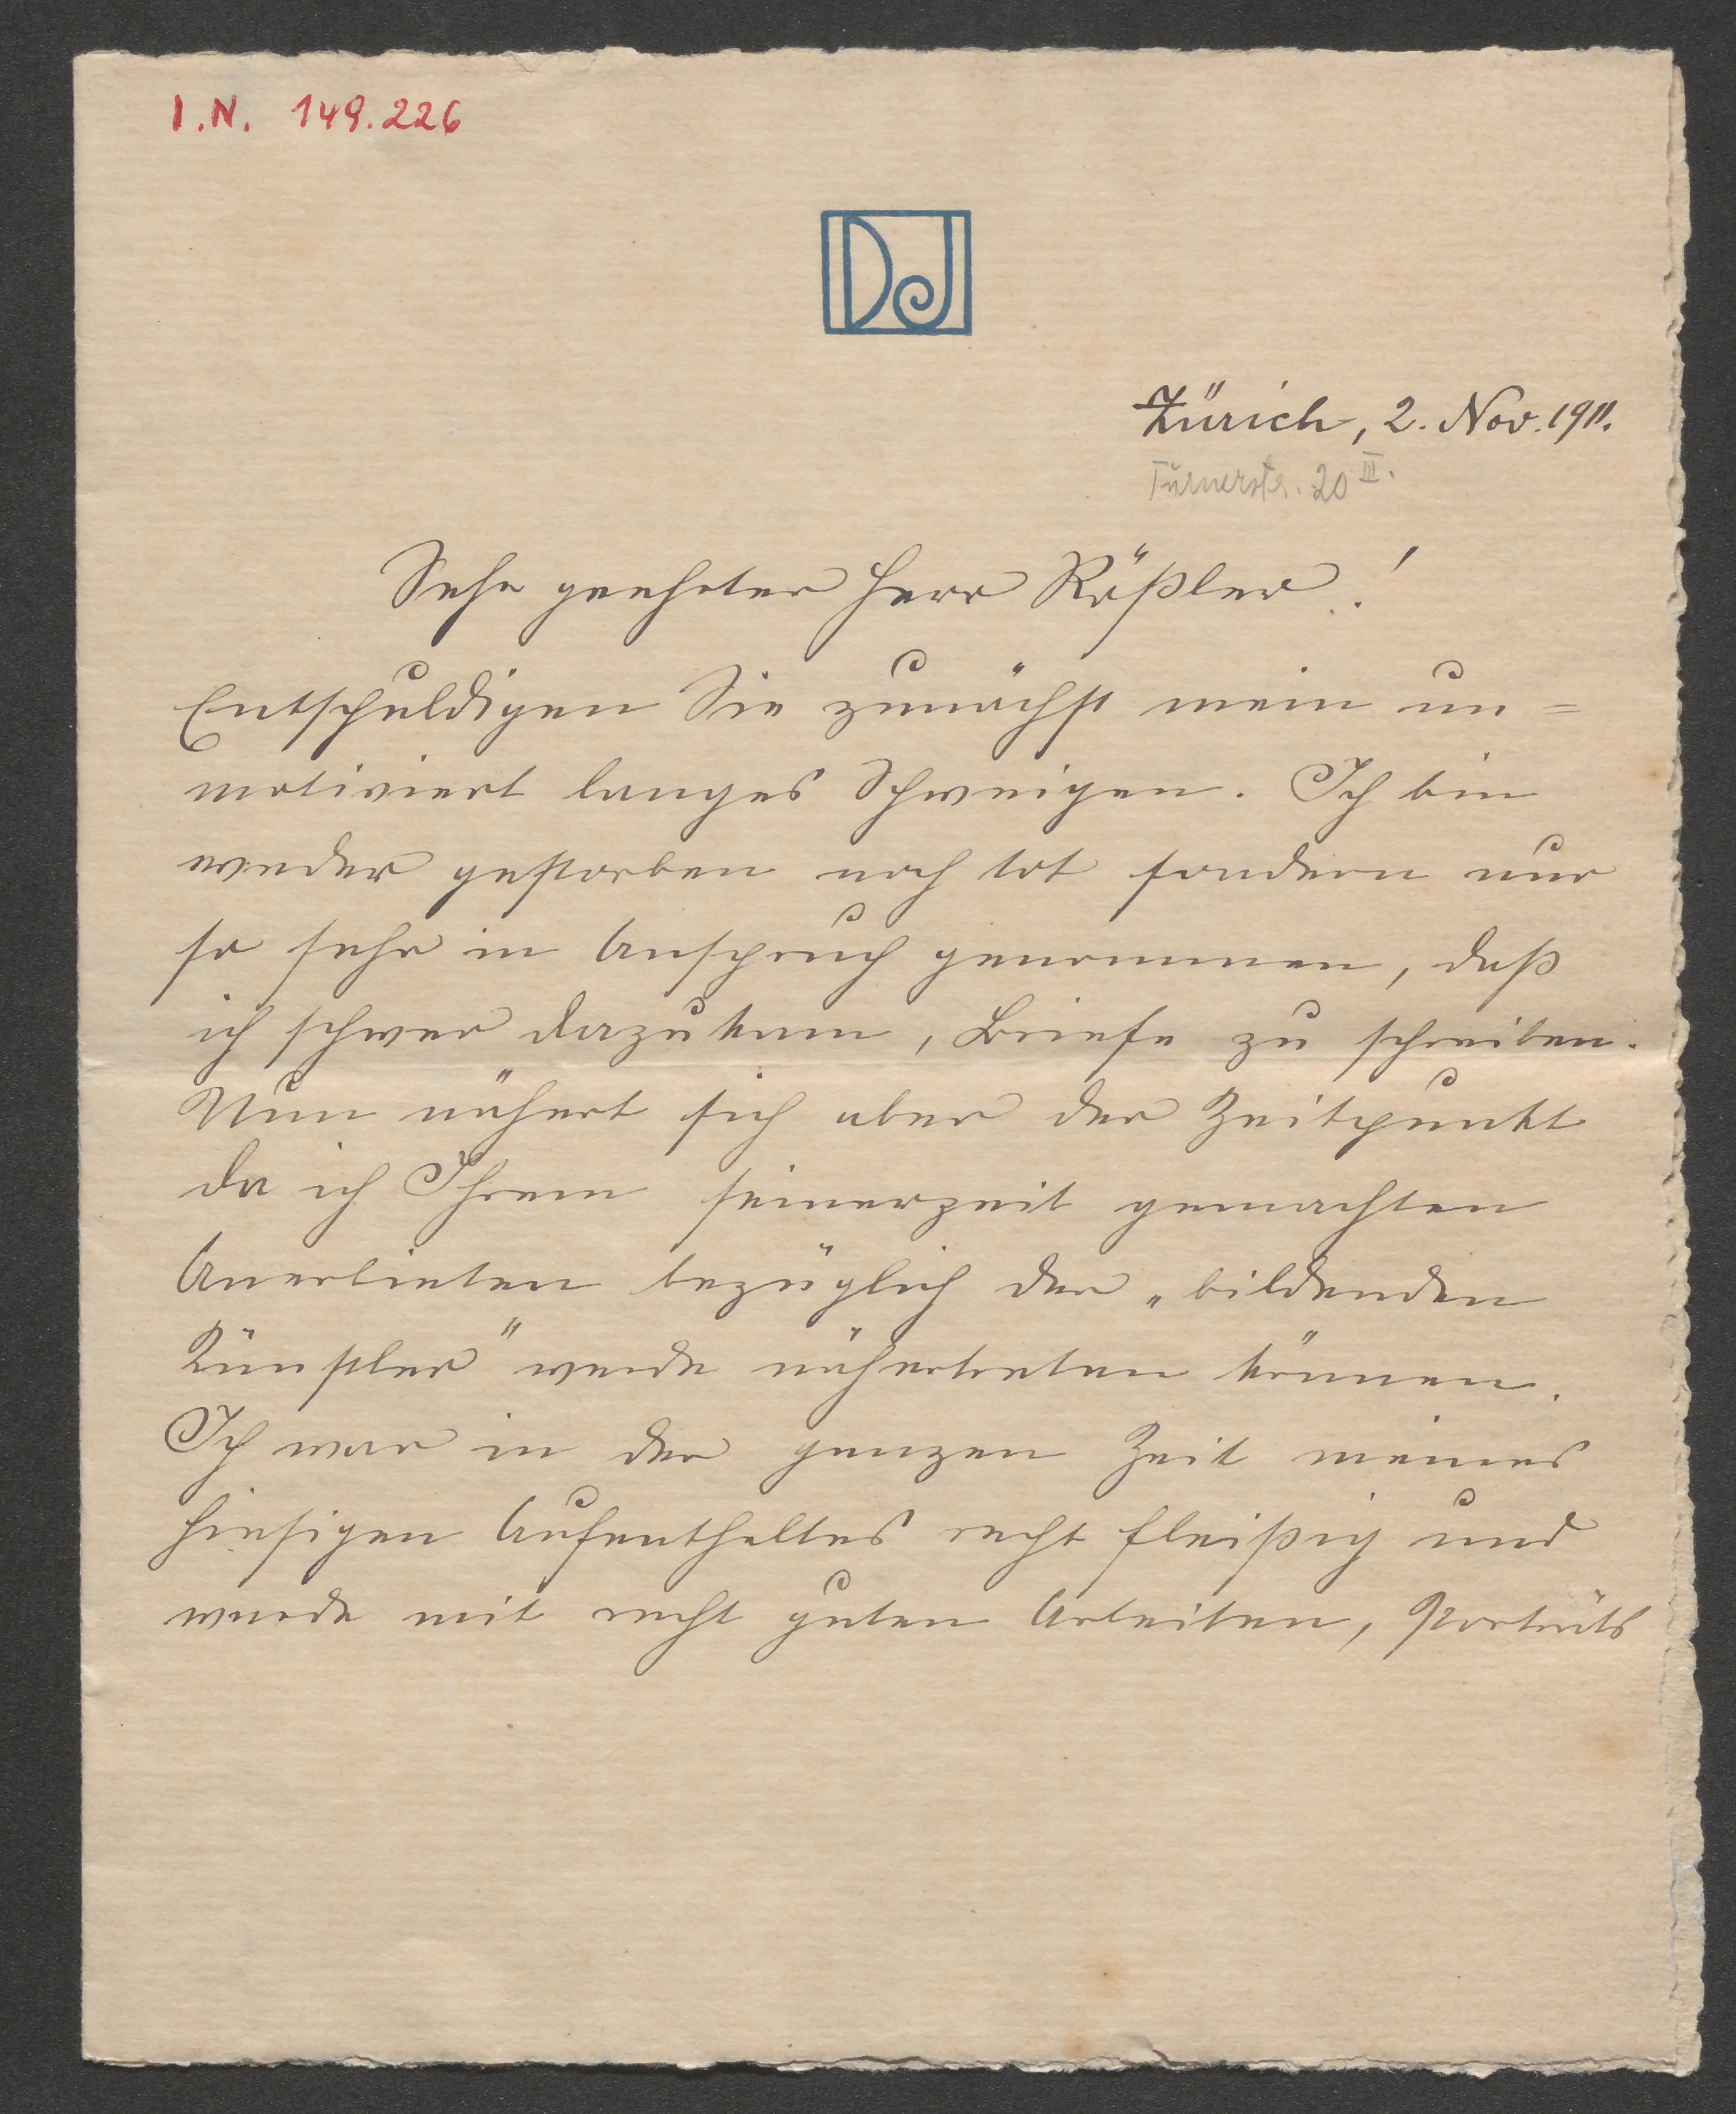 I.N. 149.226
DJ
Zürich, 2. Nov. 1911.
Turnerstr. 20 III.
Sehr geehrter Herr Rößler!
Entschuldigen Sie zunächst mein un=
motiviert langes Schweigen. Ich bin
weder gestorben noch tot sondern nur
so sehr in Anspruch genommen, daß
ich schwer dazukam, Briefe zu schreiben.
Nun nähert sich aber der Zeitpunkt
da ich Ihrem seinerzeit gemachten
Anerbieten bezüglich der „bildenden
Künstler" werde nähertreten können.
Ich war in der ganzen Zeit meines
hiesigen Aufenthaltes recht fleißig und
wurde mit recht guten Arbeiten, Porträts